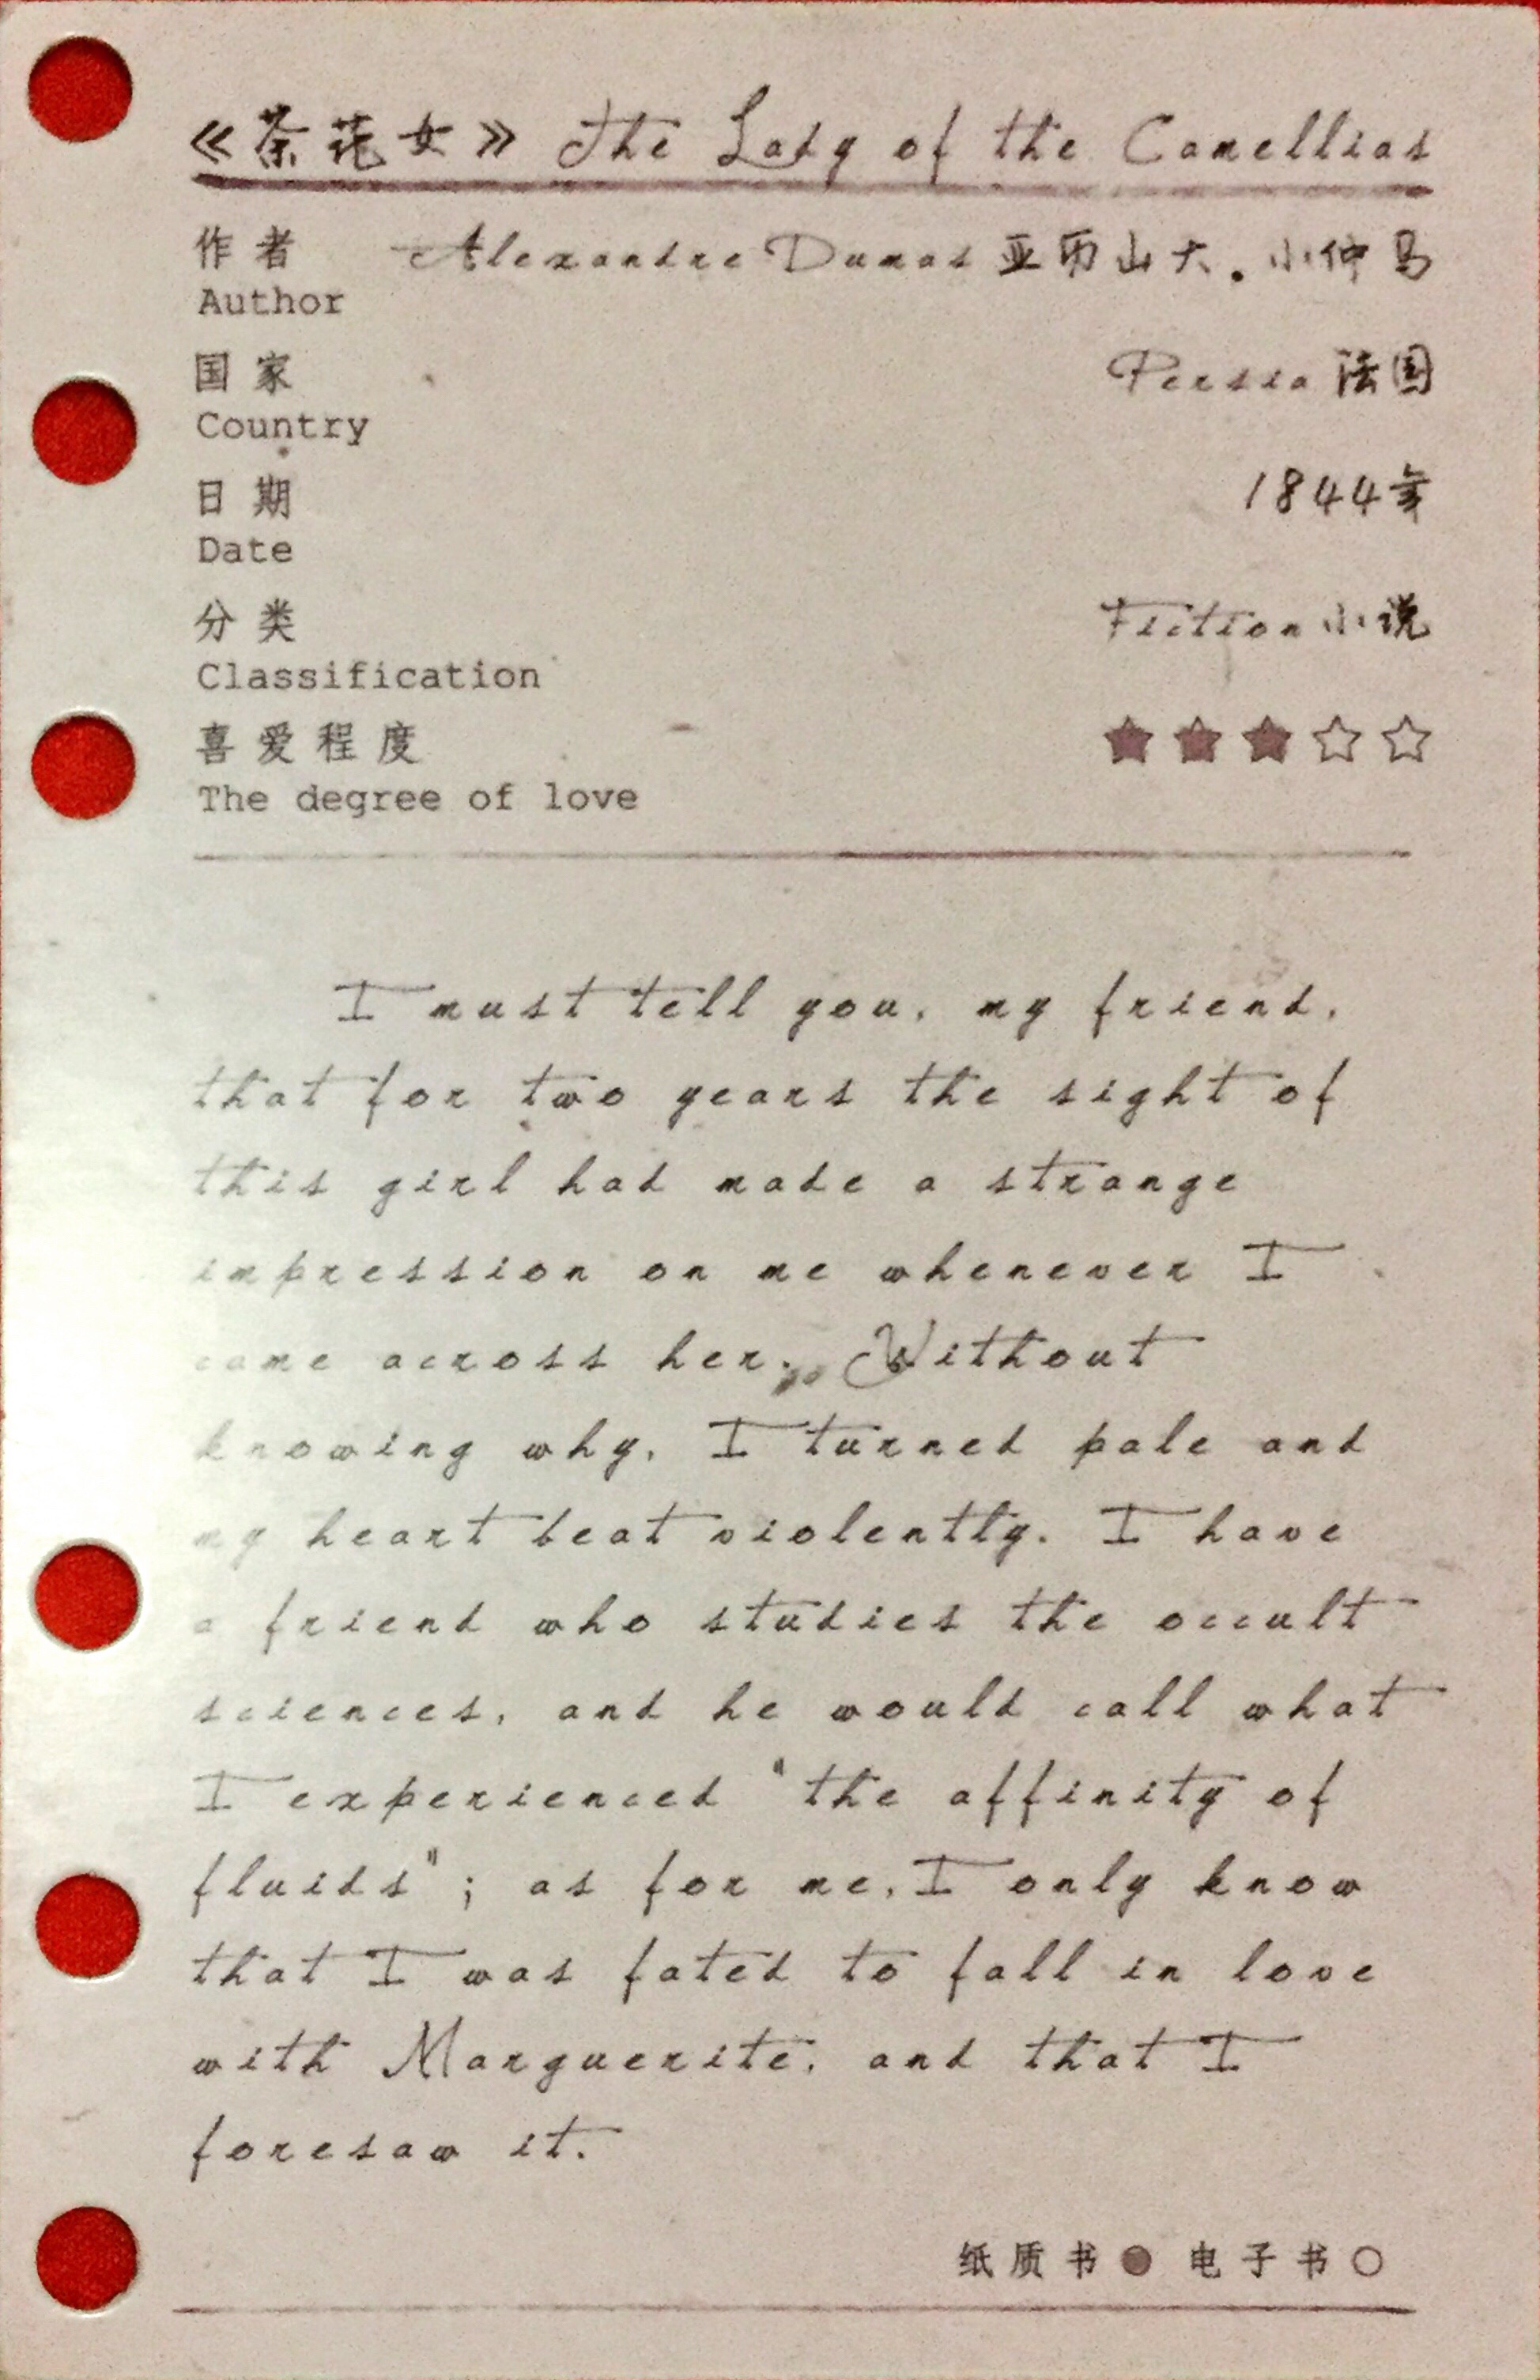 《茶花女》 The Lady of the Camellias
作者 Alexandre Dumas 亚历山大.小仲马
Author
国家 Persia 法国
Country
日期 1844年
Date
分类 Fiction 小说
Classification
喜爱程度 ★★★☆☆
The degree of love
I must tell you, my friend,
that for two years the sight of
this girl had made a strange
impression on me whenever I
came across her. Without
knowing why, I turned pale and
my heart beat violently. I have
a friend who studies the occult
sciences, and he would call what
I experienced "the affinity of
fluids"; as for me, I only know
that I was fated to fall in love
with Marguerite, and that I
foresaw it.
纸质书● 电子书○